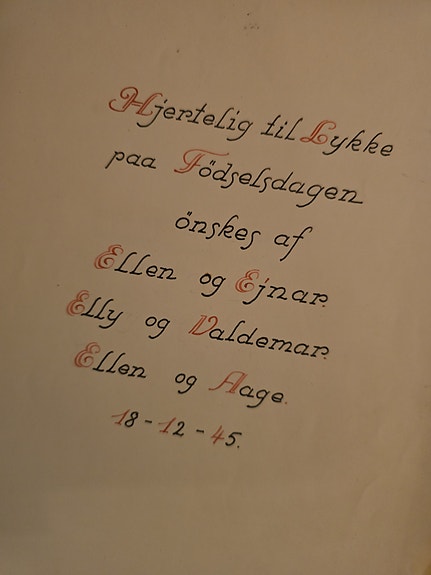 Hjertelig til Lykke
paa Födselsdagen
önskes af
Ellen og Ejnar.
Elly og Valdemar.
Ellen og Aage.
18-12-45.